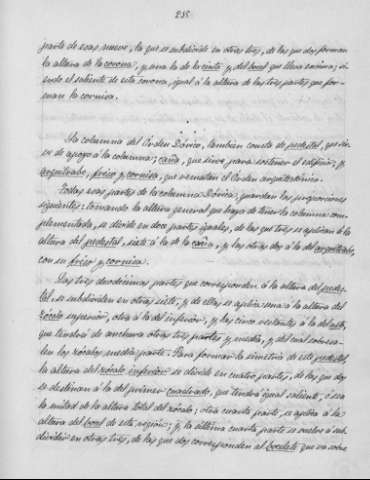 235
parte de esas nueve, la que se subdivide en otras tres, de las que dos forman
la altura de la corona, y una la de la cinta y del bocel que lleva encima; si-
endo el saliente de esta corona, igual á la altura de las tres partes que for-
man la cornisa.
La columna del Orden Dórico, tambien consta de pedestal, que sir-
ve de apoyo á la columna; caña, que sirve para sostener el edificio, y
arquitrabe, friso y cornisa, que rematan el Orden arquitectónico.
Todas esas partes de la columna Dórica, guardan las proporciones
siguientes: tomando la altura general que haya de tener la columna com-
plementada, se divide en doce partes iguales, de las que tres se aplican á la
altura del pedestal, siete á la de la caña, y las otras dos á la del arquitrabe,
con su friso y cornisa.
Las tres duodécimas partes que corresponden á la altura del pedes-
tal, se subdividen en otras siete, y de ellas se aplica: una á la altura del
zócalo superior, otra á la del inferior, y las cinco restantes á la del
que tendrá de anchura otras tres partes y media, y del cual sobresa-
len los zócalos media parte. Para formar la simetría de este pedestal,
la altura del zócalo inferior se divide en cuatro partes, de las que dos
se destinan á la del primer cuadrado, que tendrá igual saliente, ó sea
la mitad de la altura total del zócalo; otra cuarta parte, se aplica á la
altura del bocel de esta región; y la última cuarta parte se vuelve á sub-
dividir en otras tres, de las que dos corresponden al bordete que va sobre